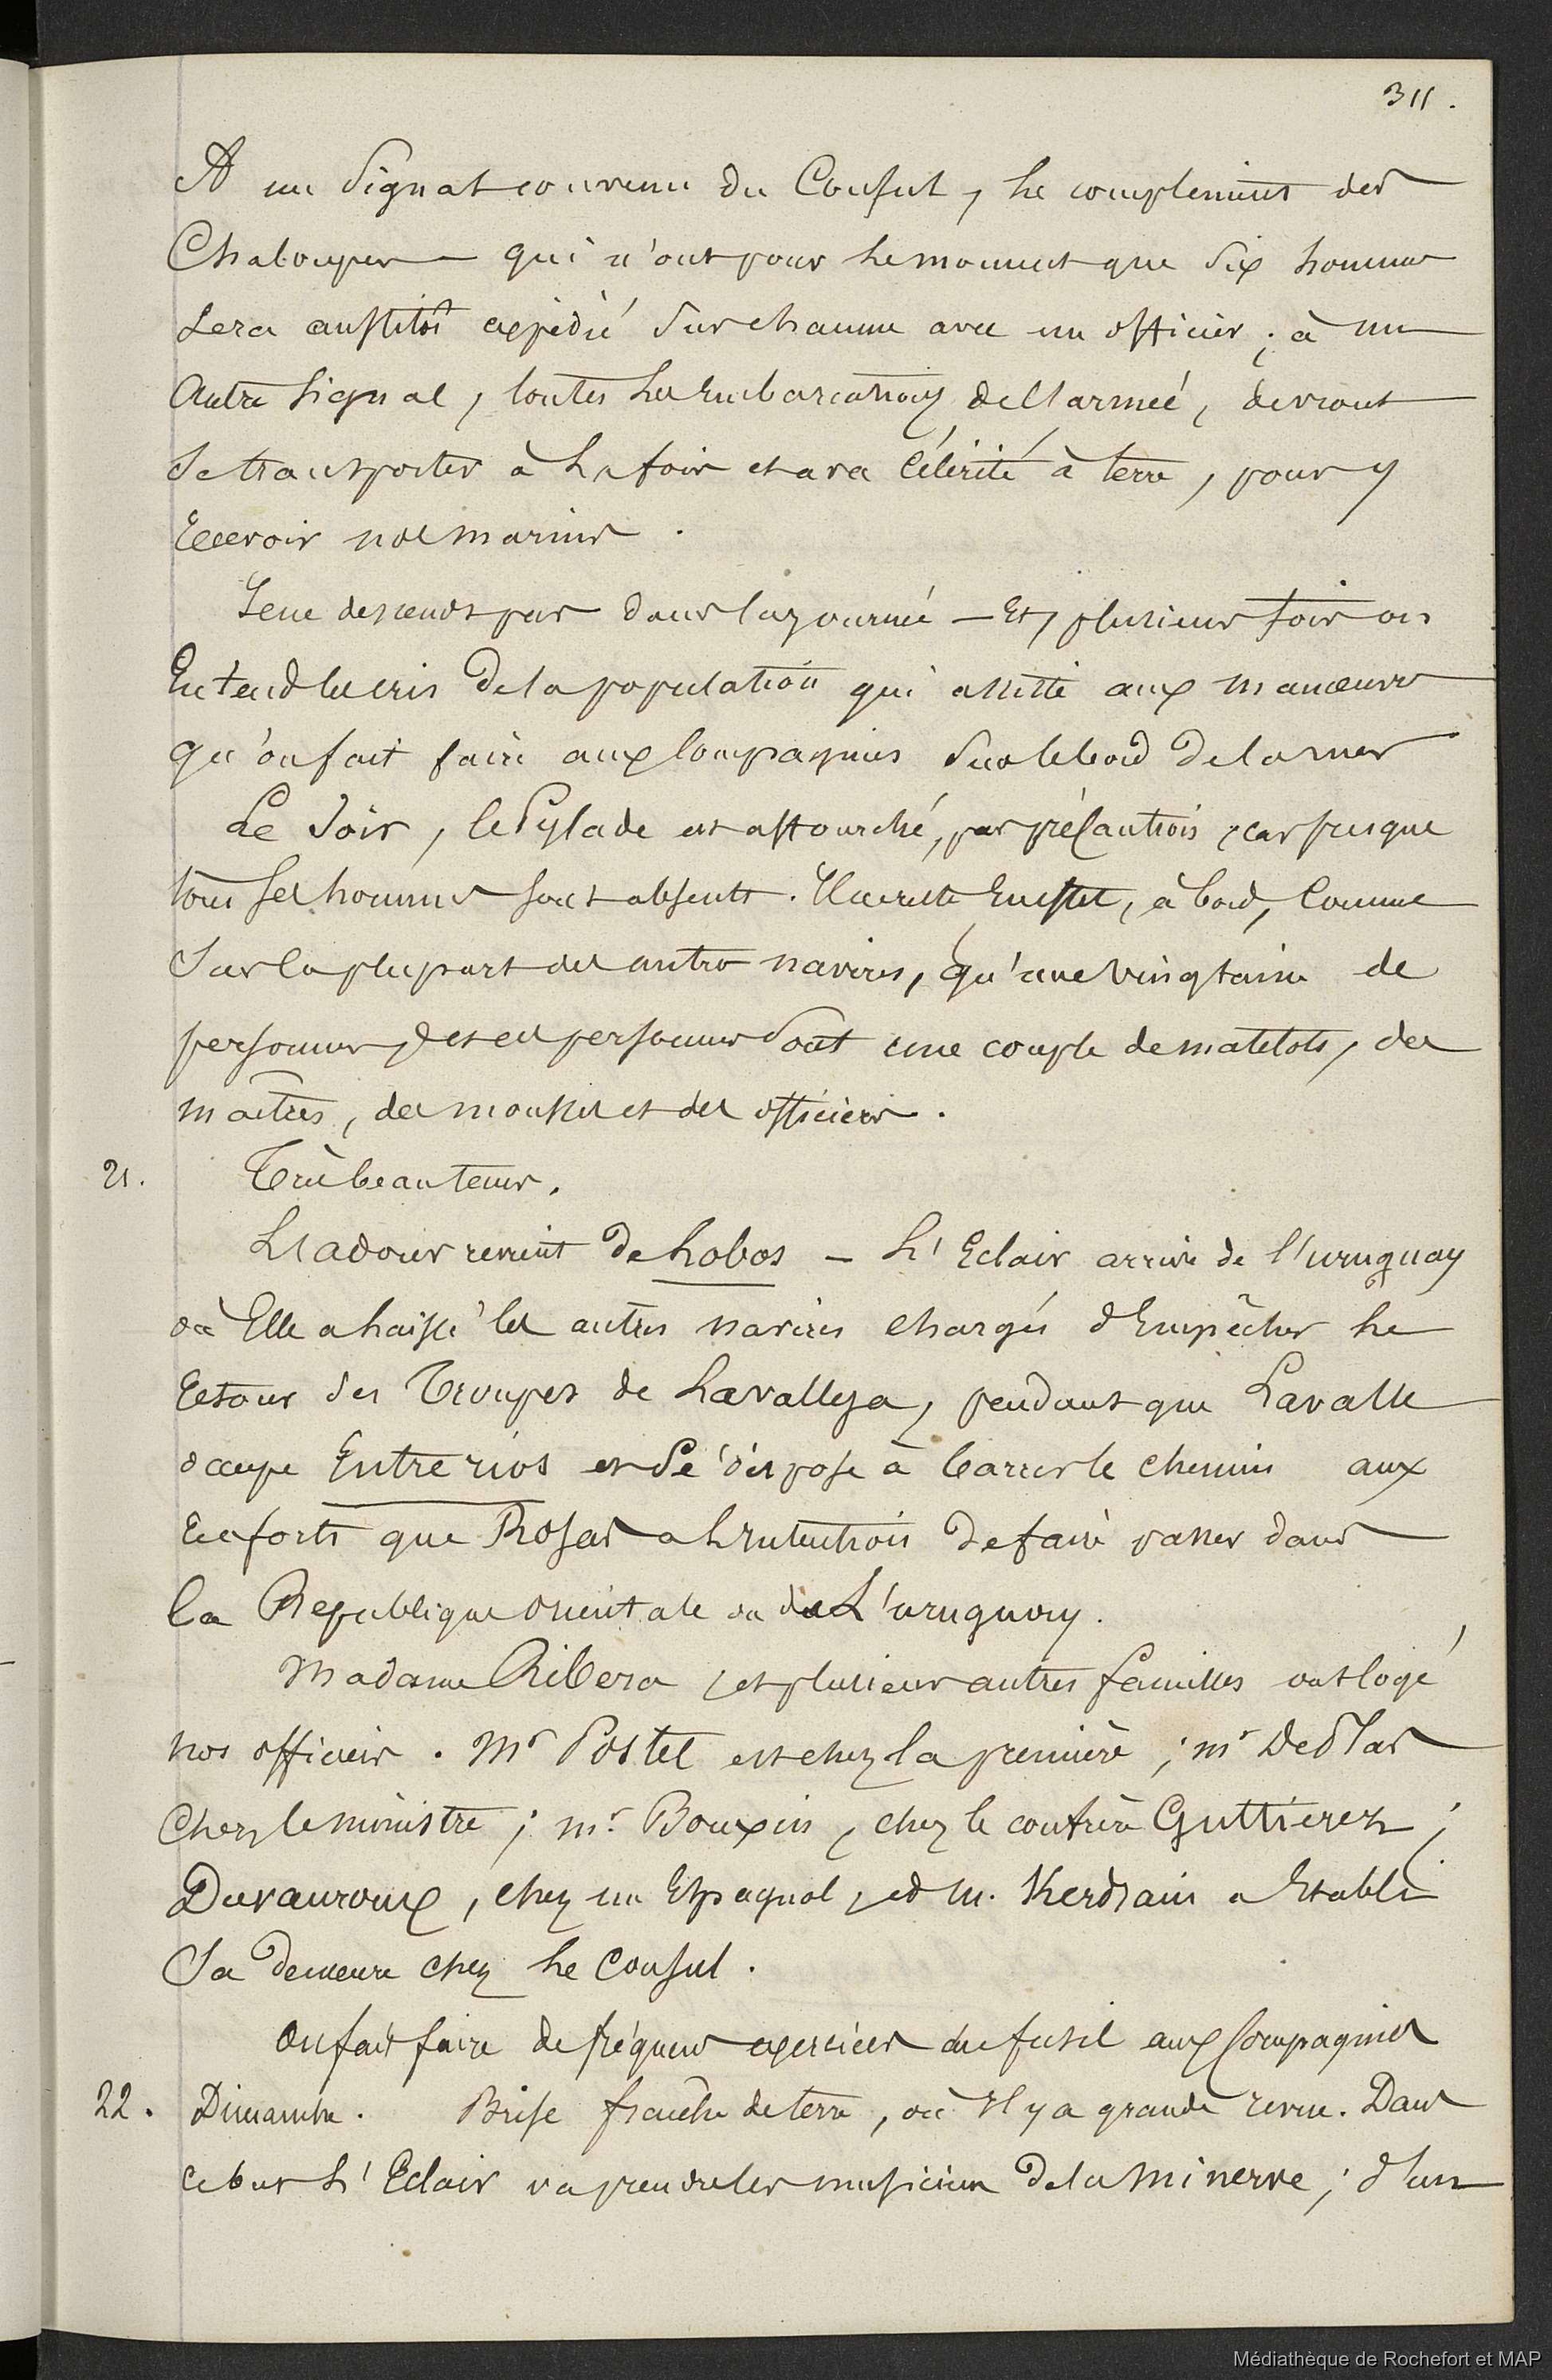 311.
A un Signal convenu du Consul, le complement des
Chaloupes qui n'ont pour le moment que Six hommes
Sera aussitôt expédié Sur chacune avec un officier ; à un
Autre Signal, toutes les Embarcations de l'armée, devront
Se transporter à la fois et avec Célérité à terre, pour y
Recevoir nos marins.
Je ne descends pas dans la journée — Et, plusieurs fois on
Entend les cris de la population qui assiste aux manœuvres
qu'on fait faire aux Compagnies Sur le bord de la mer
Le Soir, le Pylade est affourché, par précaution, car presque
tous ses hommes sont absents. Il ne reste En effet, à bord, Comme
Sur la plupart des autres navires, qu'une vingtaine de
personnes, et ces personnes Sont une couple de matelots, des
maîtres, des mousses et des officiers.
21. Très beau temps.
L'adour revient de Lobos — L'Eclair arrive de l'uruguay
où Elle a laissé les autres navires chargés d'Empêcher le
Retour des Troupes de Lavalleja, pendant que Lavalle
occupe Entre rios et Se dispose à barrer le chemin aux
Renforts que Rosas a l'intention de faire passer dans
la Republique orientale ou de L'uruguay.
Madame Ribera, et plusieurs autres familles ont logé
nos officiers. Mr Postel est chez la première ; mr Deslas
Chez le ministre ; mr. Bouxin, chez le confrère Guttierez ;
Duvauroux, chez un Espagnol, et M. Kerdrain a Etabli
Sa demeure chez le Consul.
On fait faire de fréquens exercices du fusil aux Compagnies
22. Dimanche. Brise fraîche de terre, où Il y a grande revue. Dans
ce but L'Eclair va prendre les musiciens de la Minerve ; d'un
Médiathèque de Rochefort et MAP